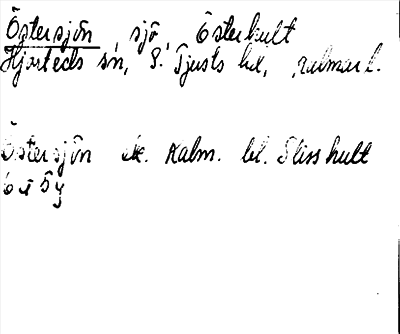 Östersjön, sjö, Österhult
Hjorteds sn, S. Tjusts hd, Kalmar l.
Östersjön ek. Kalm. bl. Blisshult
6 g 5 y